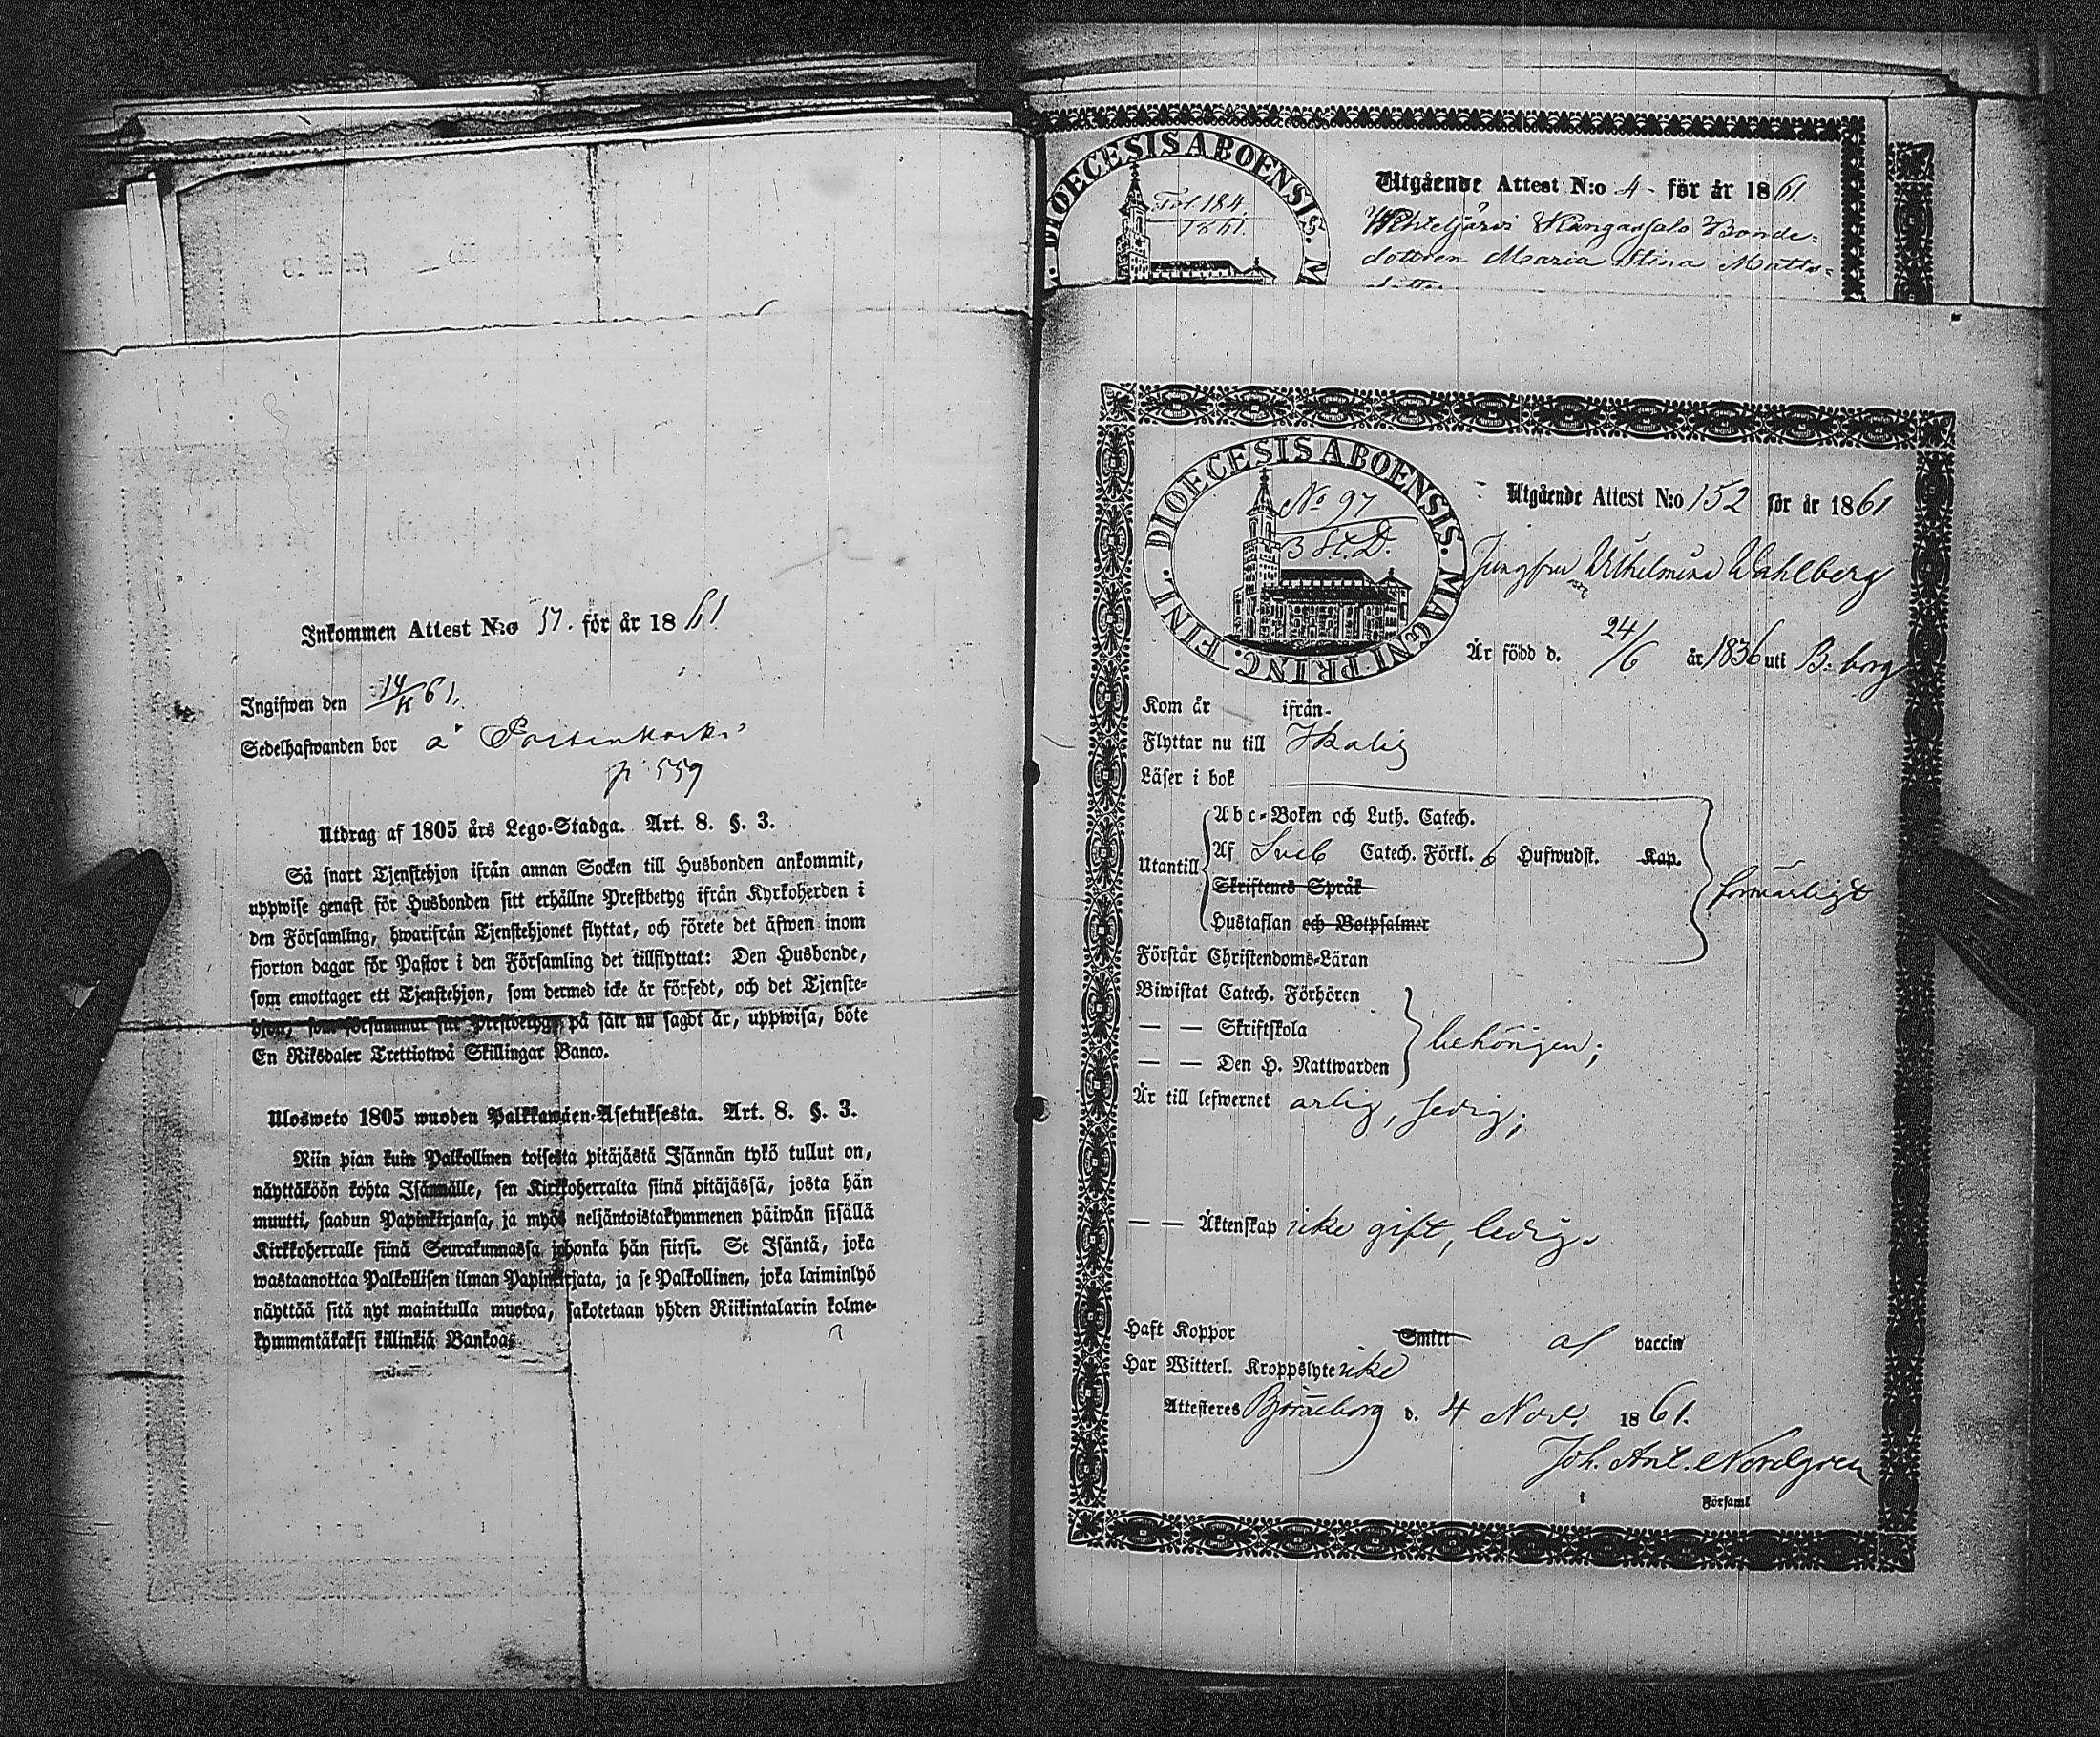 Inkommen Attest N:o 57. för år 1861
Ingifwen den 14/11 61.
Sedelhafwanden bor å
p. 559
Utdrag af 1805 års Lego-Stadga. Art. 8. §. 3.
Så snart Tjenstehjon ifrån annan Socken till Husbonden ankommit,
uppwise genast för Husbonden sitt erhållne Prestbetyg ifrån Kyrkoherden i
den Församling, hwarifrån Tjenstehjonet flyttat, och förete det äfwen inom
fjorton dagar för Pastor i den Församling det tillflyttat: Den Husbonde,
som emottager ett Tjenstehjon, som dermed icke är försedt, och det Tjenste-
hjon, som försummar sitt Prestbetyg, på sätt nu sagdt är, uppwisa, böte
En Riksdaler Trettiotwå Skillingar Banco.
Ulosweto 1805 wuoden Palkkawäen-Asetuksesta. Art. 8. §. 3.
Niin pian kuin Palkollinen toisesta pitäjästä Isännän tykö tullut on,
näyttäköön kohta Isännälle, sen Kirkkoherralta siinä pitäjässä, josta hän
muutti, saadun Papinkirjansa, ja myös neljäntoistakymmenen päiwän sisällä
Kirkkoherralle siinä Seurakunnassa johonka hän siirsi. Se Isäntä, joka
wastaanottaa Palkollisen ilman Papinkirjata, ja se Palkollinen, joka laiminlyö
näyttää sitä nyt mainitulla muotoa, sakotetaan yhden Riikintalarin kolme-
kymmentäkaksi killinkiä Bankoa.
DIOECESIS ABOENSIS. M
Fol 184
1861.
Utgående Attest N:o 4 för år 1861.
Kangassalo Bonde-
dottren Maria Stina Matts-
DIOECESIS ABOENSIS. MAGNI PRINC. FINL.
No 97
3 St. D.
Utgående Attest N:o 152 för år 1861
Jungfrun Vilhelmina Wahlberg
Är född d. 24/6 år 1836 uti B:borg
Kom år ifrån
Flyttar nu till Ikalis
Läser i bok
Utantill
Abc-Boken och Luth. Catech.
Af Sveb Catech. Förkl. 6 Hufwudst. Kap.
Skriftenes Språk
Hustaflan och Botpsalmer
försvarligt
Förstår Christendoms-Läran
Biwistat Catech. Förhören
— — Skriftskola
— — Den H. Nattwarden
behörigen;
Är till lefwernet ärlig, sedig;
— — Äktenskap icke gift, ledig.
Haft Koppor Smitt af vaccin
Har Witterl. Kroppslyte icke
Attesteres Björneborg d. 4 Nov. 1861.
Joh. Ant. Nordgren
i Församl